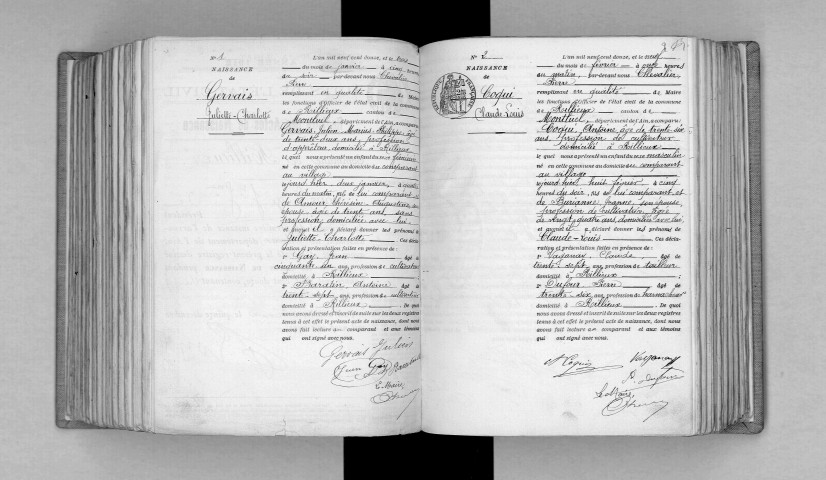 N° 1
NAISSANCE
de
Gervais
Juliette-Charlotte
L'an mil neuf cent douze, et le trois
du mois de janvier à cinq heures
du soir, par-devant nous Chevalier
Pierre
remplissant en qualité de Maire
les fonctions d'officier de l'état civil de la commune
de Rillieux canton de
Montluel, département de l'Ain, a comparu
Gervais, Julien Marius Philippe, âgé
de trente deux ans, profession
d'apprêteur, domicilié à Rillieux
lequel nous a présenté un enfant du sexe féminin
né en cette commune au domicile du comparant
au village
aujourd'hui deux janvier, à
heures du matin, né de lui comparant et
de Augustine, son
épouse, âgée de trente ans, sans
profession, domiciliée avec lui,
et auquel il a déclaré donner les prénoms de
Juliette-Charlotte Ces décla-
ration et présentation faites en présence de
1° Gay, Jean âgé de
cinquante un ans, profession de cultivateur
domicilié à Rillieux
2° Antoine âgé de
trente sept ans, profession de cultivateur
domicilié à Rillieux De quoi
nous avons dressé et inscrit de suite sur les deux registres
tenus à cet effet le présent acte de naissance, dont nous
avons fait lecture au comparant et aux témoins
qui ont signé avec nous.
Gervais Julien
Le Maire
N° 2
NAISSANCE
de
Coqui
Claude Louis
L'an mil neuf cent douze, et le neuf
du mois de février à onze heures
du matin, par-devant nous Chevalier,
Pierre
remplissant en qualité de Maire
les fonctions d'officier de l'état civil de la commune
de Rillieux canton de
Montluel, département de l'Ain, a comparu
Coqui, Antoine, âgé de trente six
ans, profession de cultivateur
domicilié à Rillieux
lequel nous a présenté un enfant du sexe masculin
né en cette commune au domicile du comparant
au village
aujourd'hui huit février, à cinq
heures du soir, né de lui comparant et
de Jeanne, son épouse,
profession de cultivatrice, âgée
de vingt quatre ans, domiciliée avec lui,
et auquel il a déclaré donner les prénoms de
Claude-Louis Ces décla-
ration et présentation faites en présence de
1° Vaganay, Claude âgé de
trente sept ans, profession de tailleur
domicilié à Rillieux
2° Dufour Pierre âgé de
trente six ans, profession de
domicilié à Rillieux De quoi
nous avons dressé et inscrit de suite sur les deux registres
tenus à cet effet le présent acte de naissance, dont nous
avons fait lecture au comparant et aux témoins
qui ont signé avec nous.
Coqui Vaganay
P. Dufour
Le Maire